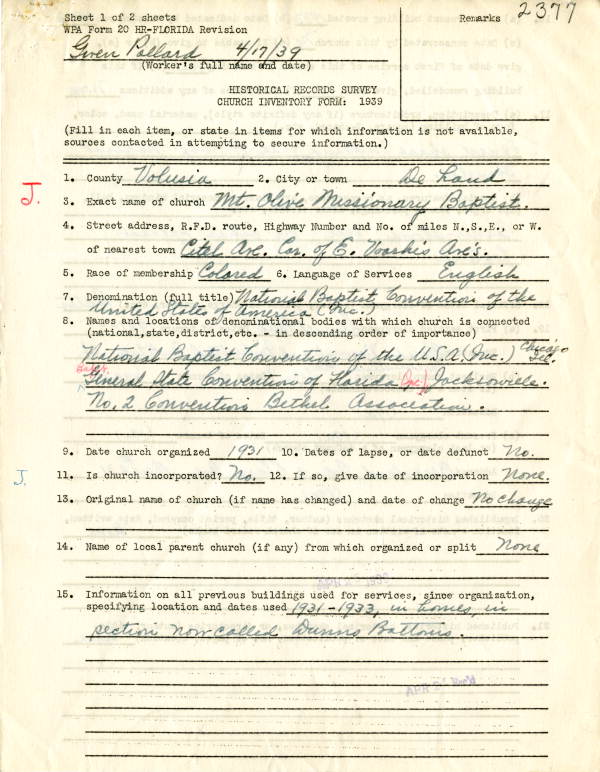 Sheet 1 of 2 sheets
Remarks 2377
WPA Form 20 HR-FLORIDA Revision
Gwen Pollard 4/17/39
(Worker's full name and date)
HISTORICAL RECORDS SURVEY
CHURCH INVENTORY FORM: 1939
(Fill in each item, or state in items for which information is not available,
sources contacted in attempting to secure information.)
1. County Volusia 2. City or town De Land
J.
3. Exact name of church Mt. Olive Missionary Baptist.
4. Street address, R.F.D. route, Highway Number and No. of miles N.,S.,E., or W.
of nearest town Ave. Cor. of E. Voorhis Ave's.
5. Race of membership Colored 6. Language of Services English
7. Denomination (full title) National Baptist Convention of the
United States of America (Inc.)
8. Names and locations of denominational bodies with which church is connected
(national,state,district,etc. - in descending order of importance)
National Baptist Convention of the U.S.A. (Inc.) Chicago Ill.
Bapt.
General State Convention of Florida (Inc.) Jacksonville.
No. 2 Convention Bethel Association.
9. Date church organized 1931 10. Dates of lapse, or date defunct No.
J.
11. Is church incorporated? No. 12. If so, give date of incorporation None.
13. Original name of church (if name has changed) and date of change No change
14. Name of local parent church (if any) from which organized or split None
15. Information on all previous buildings used for services, since organization,
specifying location and dates used 1931-1933, in homes, in
section now called Dunns Bottoms.